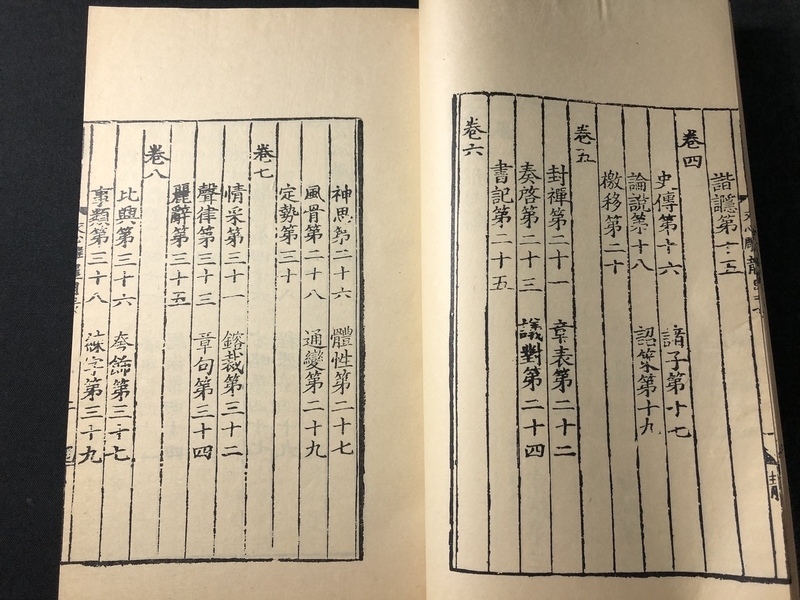 諧讔第十五
卷四
史傳第十六　諸子第十七
論說第十八　詔策第十九
檄移第二十
卷五
封禪第二十一　章表第二十二
奏啓第二十三　議對第二十四
書記第二十五
卷六
神思第二十六　體性第二十七
風骨第二十八　通變第二十九
定勢第三十
卷七
情采第三十一　鎔裁第三十二
聲律第三十三　章句第三十四
麗辭第三十五
卷八
比興第三十六　夸飾第三十七
事類第三十八　練字第三十九